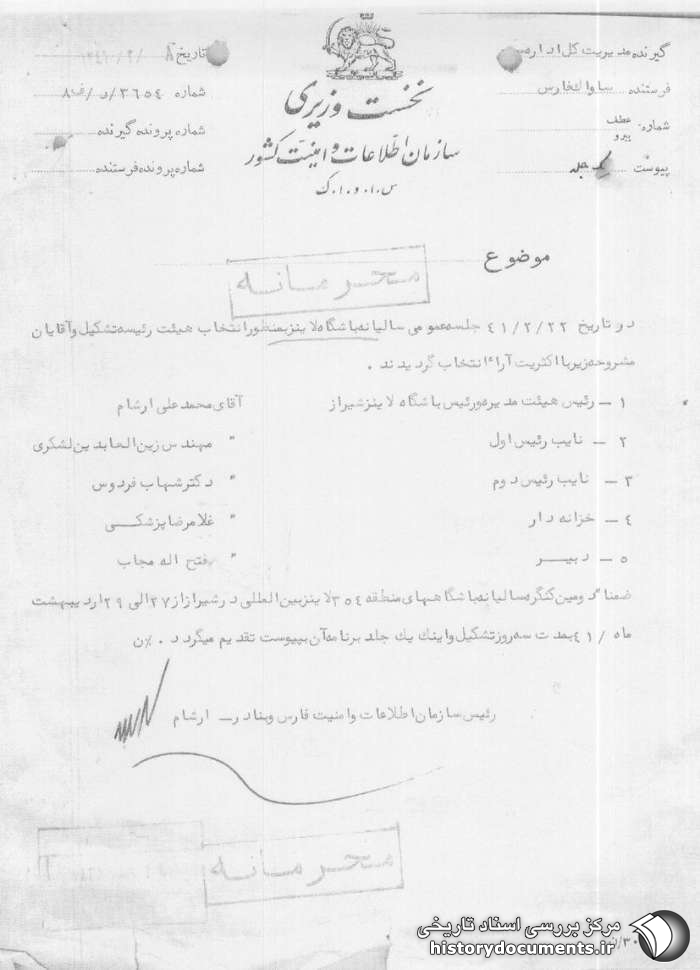 گیرنده مدیریت کل اداره
فرستنده ساواک فارس
شماره: عطف
پیرو
پیوست یک جلد
نخست وزیری
سازمان اطلاعات و امنیت کشور
س.ا.و.ا.ک
تاریخ
شماره ۳۶۵۴/د/ف۸
شماره پرونده گیرنده
شماره پرونده فرستنده
موضوع
محرمانه
در تاریخ ۴۱/۲/۲۲ جلسه عمومی سالیانه باشگاه لاینز بمنظور انتخاب هیئت رئیسه تشکیل و آقایان
مشروحه زیر با اکثریت آراء انتخاب گردیدند .
۱ – رئیس هیئت مدیره و رئیس باشگاه لاینز شیراز آقای محمد علی ارشام
۲ – نایب رئیس اول " مهندس زین العابدین لشکری
۳ – نایب رئیس دوم " دکتر شهاب فردوس
۴ – خزانه دار " غلامرضا پزشکی
۵ – دبیر " فتح اله مجاب
ضمنا دومین کنگره سالیانه باشگاههای منطقه ۳۵۴ لاینز بین المللی در شیراز از ۲۷ الی ۲۹ اردیبهشت
ماه ۴۱/ بمدت سه روز تشکیل و اینک یک جلد برنامه آن بپیوست تقدیم میگردد . %ن
رئیس سازمان اطلاعات و امنیت فارس و بنادر – ارشام
محرمانه
مرکز بررسی اسناد تاریخی
historydocuments.ir